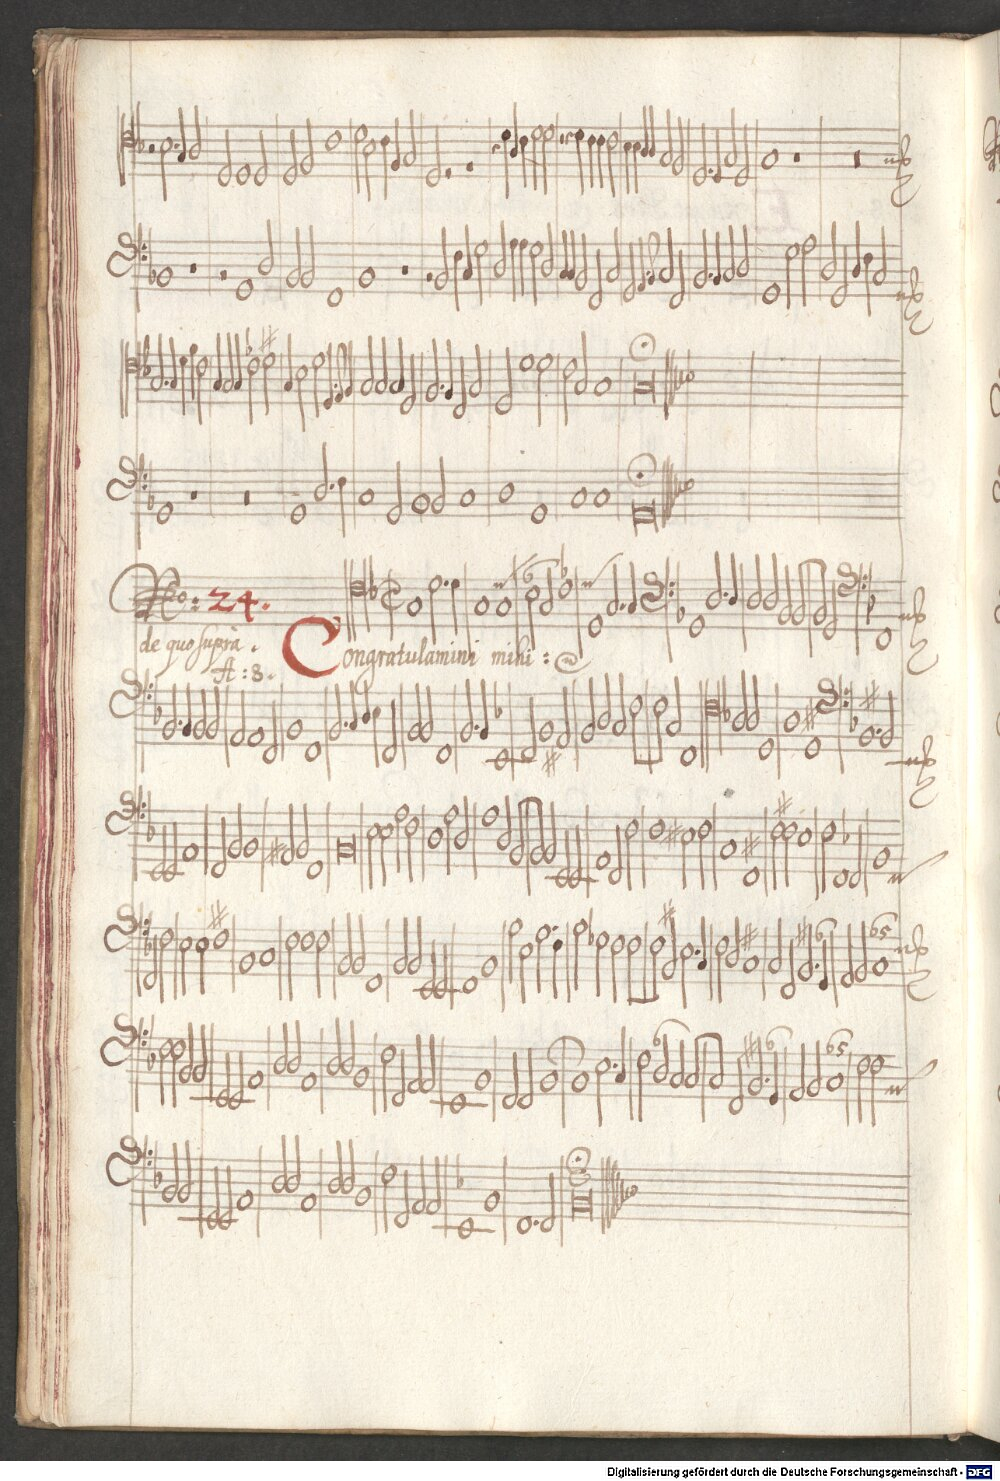 No: 24.
de quo suprà.
A: 8.
Congratulamini mihi:
6
6
65
6
6
65
Digitalisierung gefördert durch die Deutsche Forschungsgemeinschaft - DFG